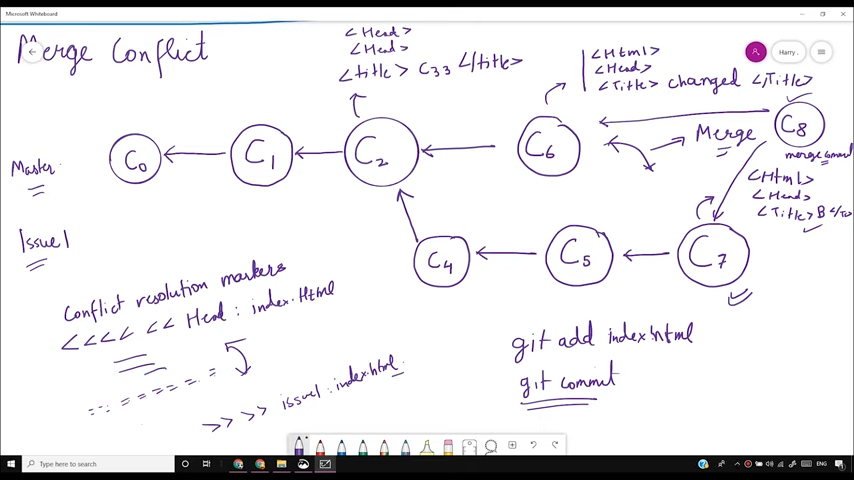 Microsoft Whiteboard
Merge Conflict
Harry...
<Head>
<Head>
<title> C33 </title>
<Html>
<Head>
<Title> changed </Title>
C0
C1
C2
C6
Merge
C8
merge commit
Master
<Html>
<Head>
<Title> B </Tit>
Issue1
C4
C5
C7
Conflict resolution markers
<<<< << Head: index.Html
== =======
>> >> issue1: index.html
git add index.html
git commit
Type here to search
ENG